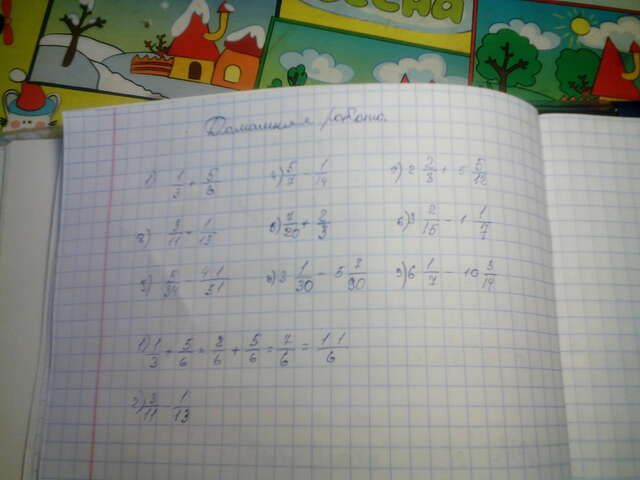 ВЕСНА
Домашняя работа.
1) 1/3 + 5/6 4) 5/7 - 1/14 7) 2 2/3 + 5/12
2) 3/11 + 1/13 5) 7/20 + 2/3 8) 3 2/15 - 1 1/7
3) 5/34 - 41/51 6) 3 1/30 - 5 7/90 9) 6 1/7 - 10 3/14
1) 1/3 + 5/6 = 2/6 + 5/6 = 7/6 = 1 1/6
2) 3/11 1/13